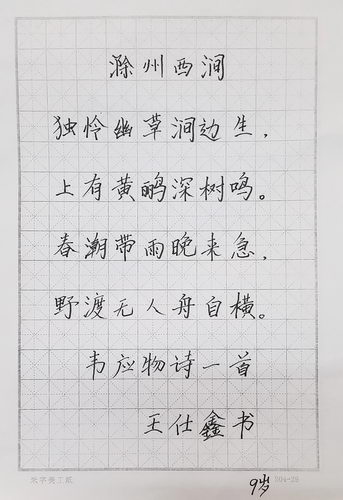 滁州西涧
独怜幽草涧边生，
上有黄鹂深树鸣。
春潮带雨晚来急，
野渡无人舟自横。
韦应物诗一首
王仕鑫书
9岁